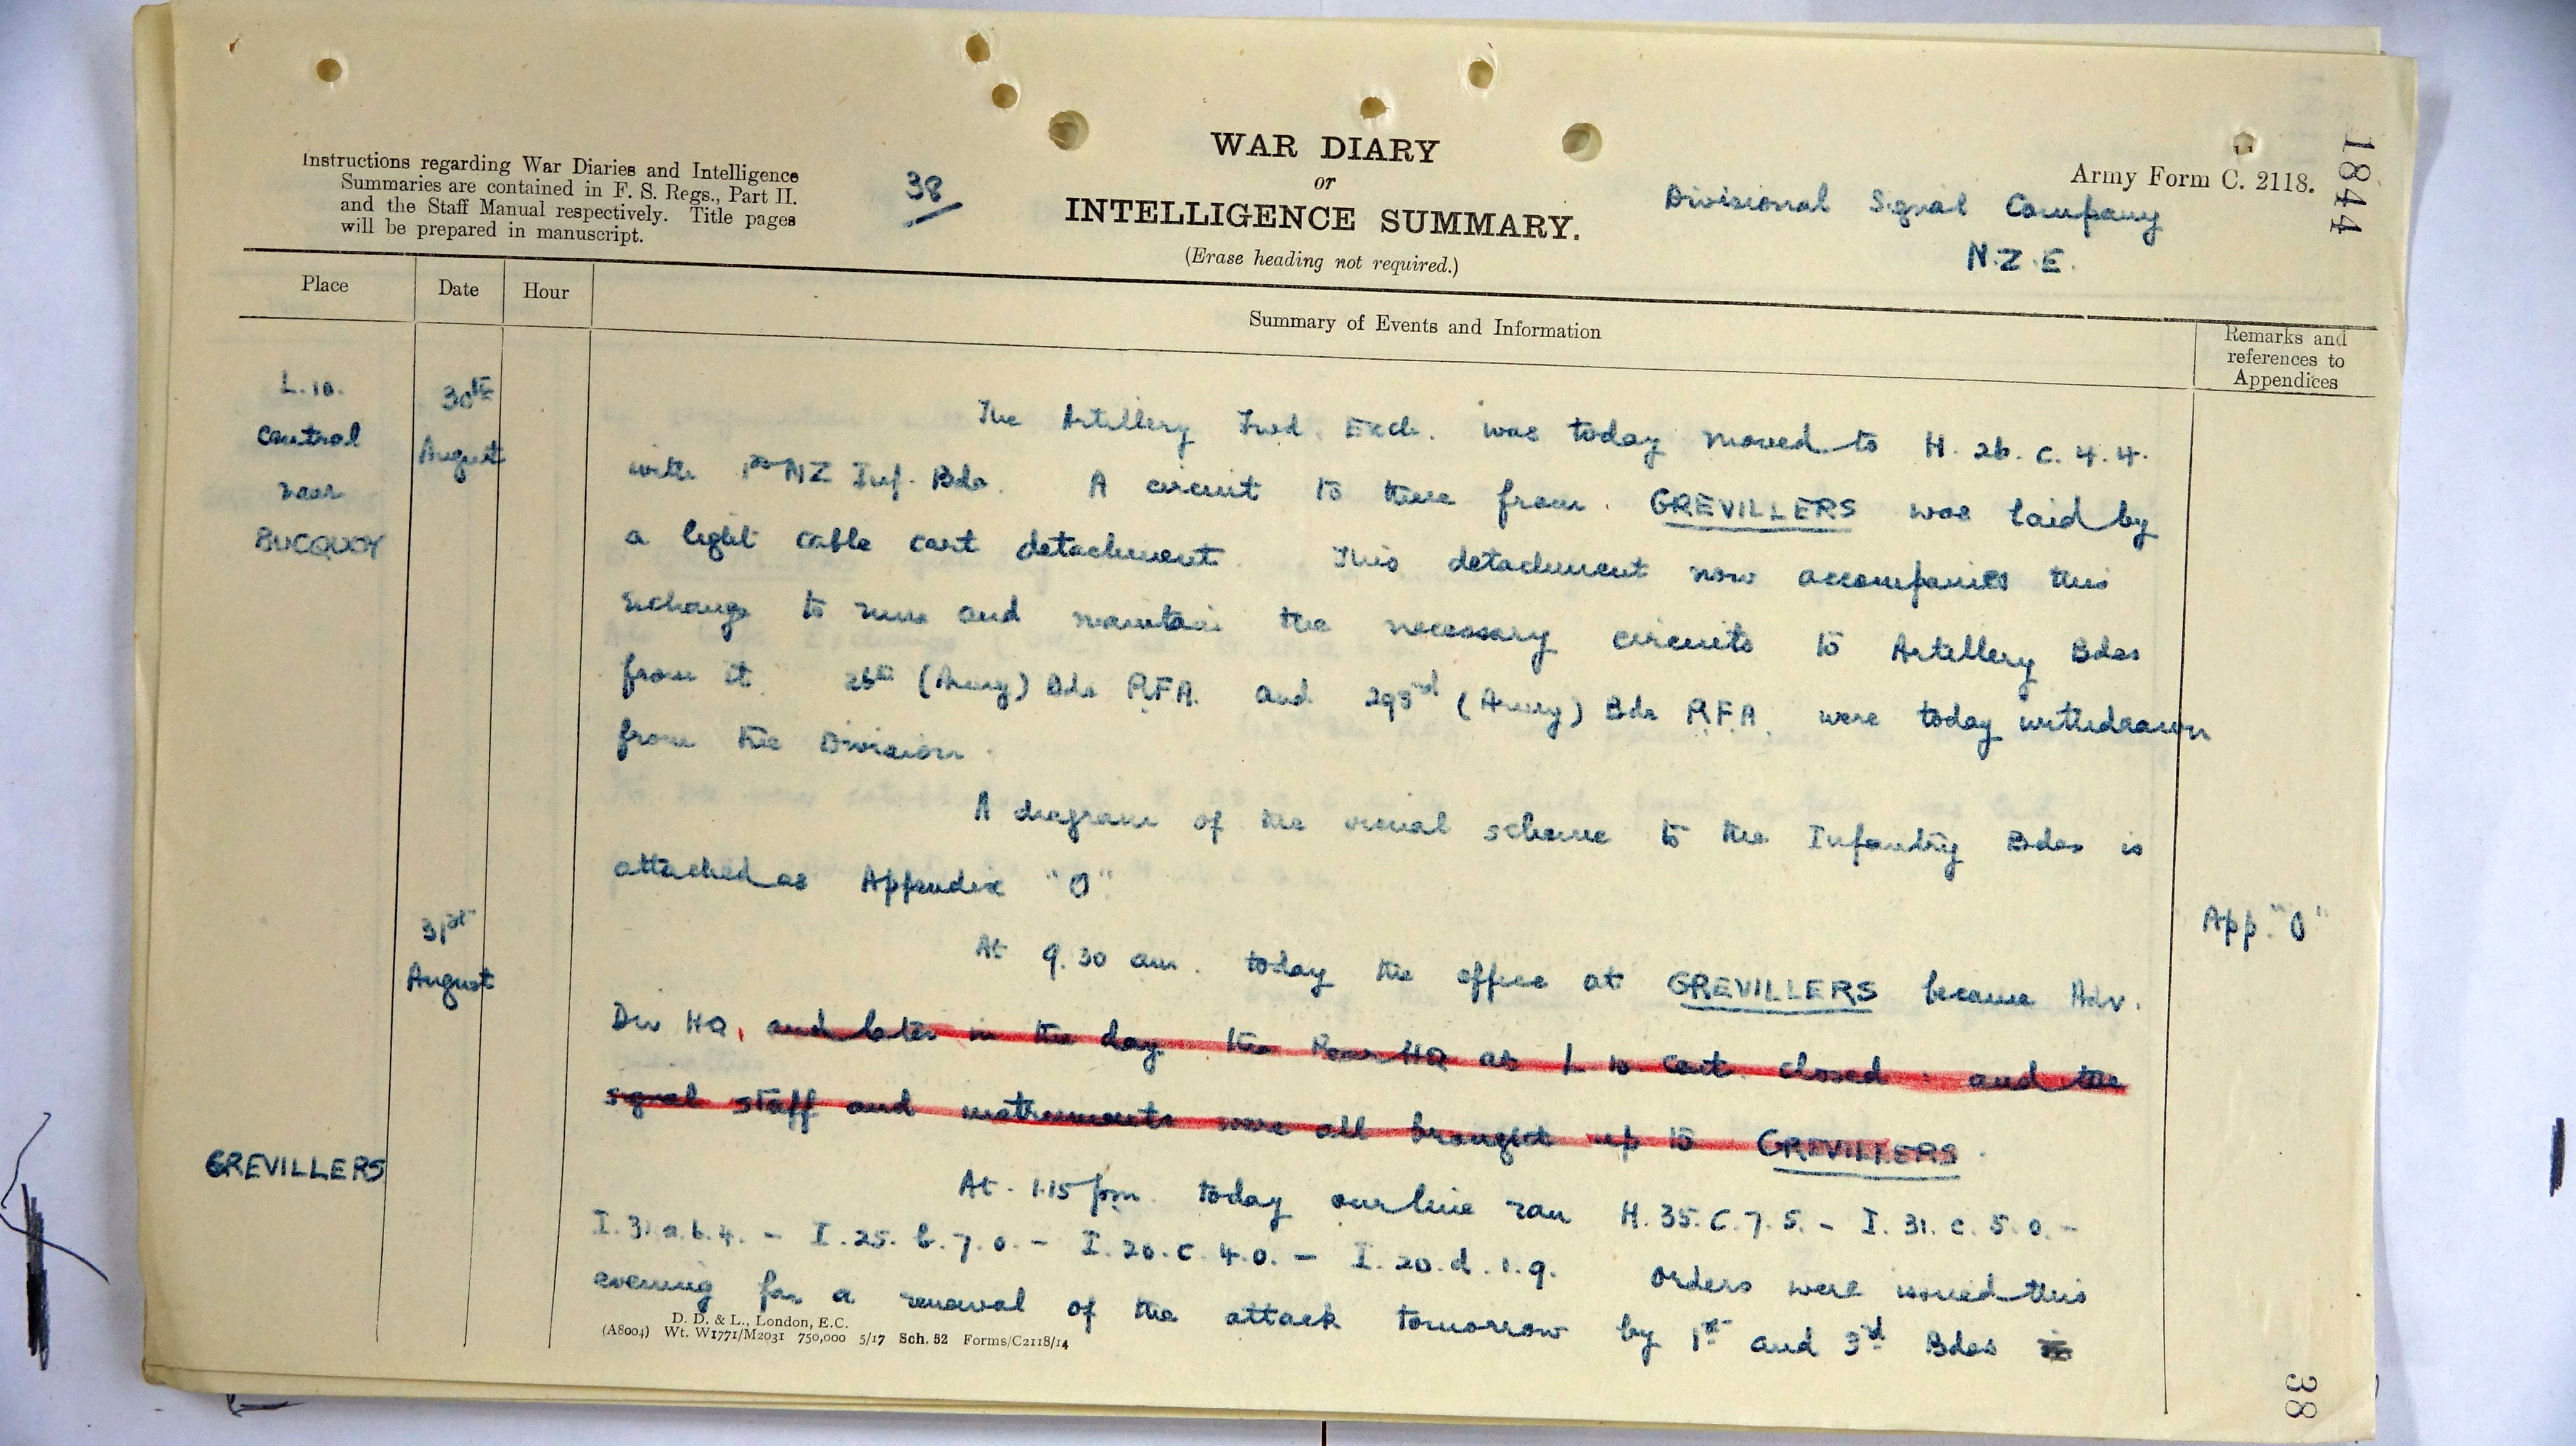 Instructions regarding War Diaries and Intelligence
Summaries are contained in F. S. Regs., Part II.
and the Staff Manual respectively. Title pages
will be prepared in manuscript.
38
WAR DIARY
or
INTELLIGENCE SUMMARY.
(Erase heading not required.)
Army Form C. 2118.
Divisional Signal Company
N.Z.E.
1844
Place
Date
Hour
Summary of Events and Information
Remarks and
references to
Appendices
L.10.
Central
near
BUCQUOY
30th
August
The Artillery Fwd. Exch. was today moved to H. 26. c. 4. 4.
with 1st NZ Inf. Bde. A circuit to there from GREVILLERS was laid by
a light cable cart detachment. This detachment now accompanies this
Exchange to run and maintain the necessary circuits to Artillery Bdes
from it. 26th (Army) Bde R.F.A. and 293rd (Army) Bde R.F.A. were today withdrawn
from the Division.
A diagram of the visual scheme to the Infantry Bdes is
attached as Appendix "O".
App. "O"
31st
August
At 9.30 am. today the office at GREVILLERS became Adv.
Div HQ, and later in the day the Rear HQ at L 10 cent. closed and the
signal staff and instruments were all brought up to GREVILLERS.
GREVILLERS
At 1.15 pm. today our line ran H. 35. C. 7. 5. - I. 31. c. 5. 0. -
I. 31. a. 6. 4. - I. 25. b. 7. 0. - I. 20. c. 4. 0. - I. 20. d. 1. 9. Orders were issued this
evening for a renewal of the attack tomorrow by 1st and 3rd Bdes
D. D. & L., London, E.C.
(A8004) Wt. W1771/M2031 750,000 5/17 Sch. 52 Forms/C2118/14
38